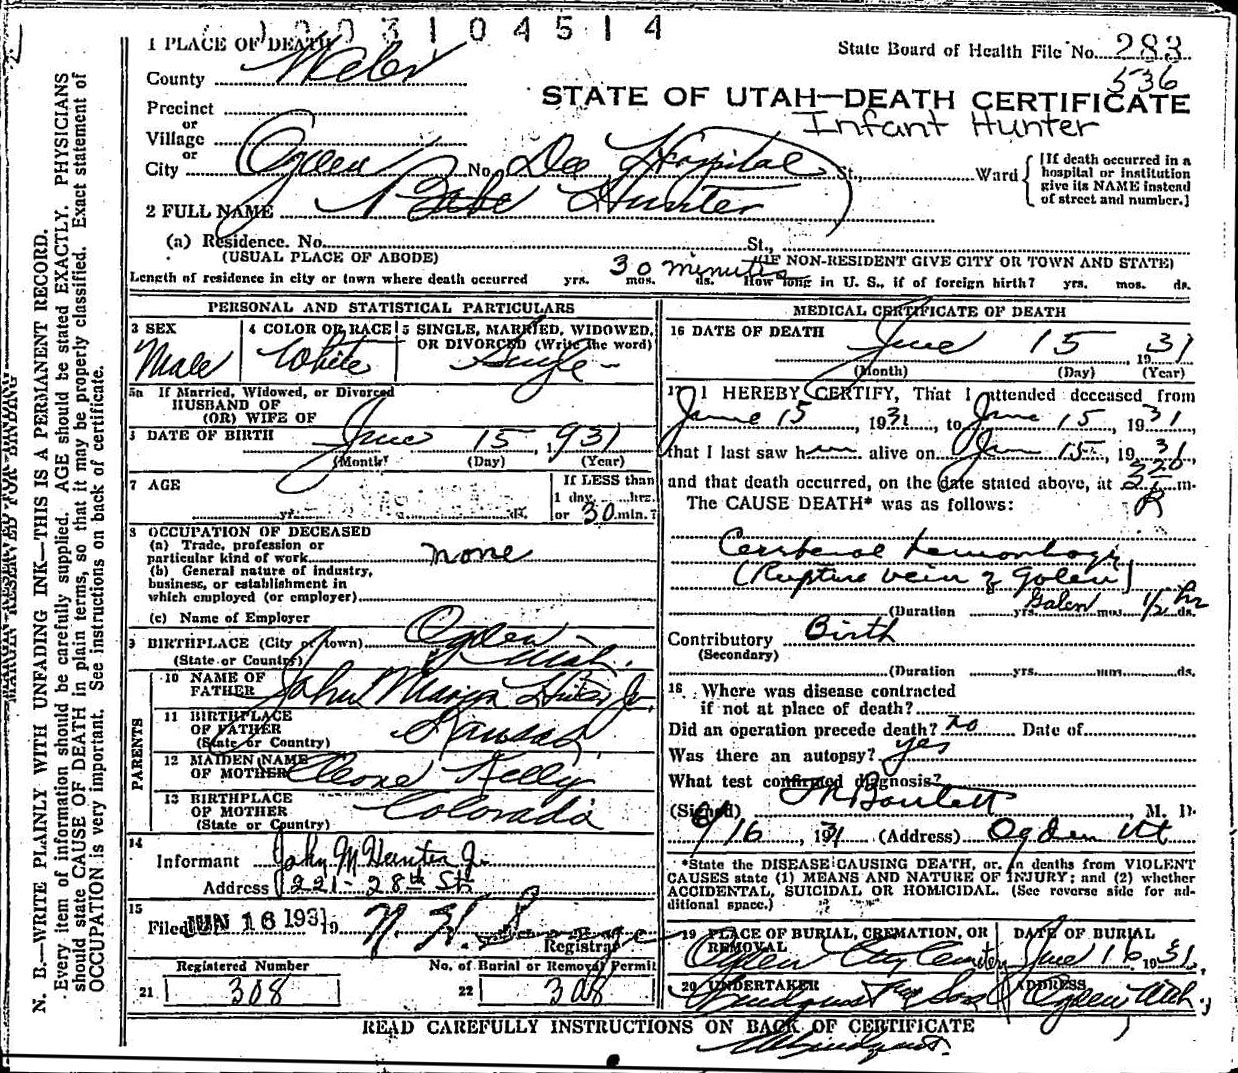 003104514
1 PLACE OF DEATH
State Board of Health File No. 283
536
County Weber
STATE OF UTAH—DEATH CERTIFICATE
Infant Hunter
Precinct
or
Village
or
City Ogden No. Dee Hospital St., Ward
[If death occurred in a hospital or institution give its NAME instead of street and number.]
2 FULL NAME Babe Hunter
(a) Residence. No. St.,
(USUAL PLACE OF ABODE) (IF NON-RESIDENT GIVE CITY OR TOWN AND STATE)
Length of residence in city or town where death occurred yrs. mos. ds. 30 minutes How long in U. S., if of foreign birth? yrs. mos. ds.
PERSONAL AND STATISTICAL PARTICULARS
3 SEX
Male
4 COLOR OR RACE
White
5 SINGLE, MARRIED, WIDOWED, OR DIVORCED (Write the word)
Single
5a If Married, Widowed, or Divorced
HUSBAND OF
(OR) WIFE OF
DATE OF BIRTH June 15, 1931
(Month) (Day) (Year)
7 AGE
yr. ds.
If LESS than
1 day, hrs.
or 30 min.?
8 OCCUPATION OF DECEASED
(a) Trade, profession or
particular kind of work none
(b) General nature of industry,
business, or establishment in
which employed (or employer)
(c) Name of Employer
9 BIRTHPLACE (City or town) Ogden
(State or Country) Utah.
PARENTS
10 NAME OF FATHER John Hunter Jr.
11 BIRTHPLACE OF FATHER (State or Country) Kansas
12 MAIDEN NAME OF MOTHER Cleone Kelly
13 BIRTHPLACE OF MOTHER (State or Country) Colorado
14
Informant John M Hunter Jr.
Address 1221- 28th St.
15
Filed JUN 16 1931 19 N. H. Savage
Registrar
Registered Number
21 308
No. of Burial or Removal Permit
22 308
MEDICAL CERTIFICATE OF DEATH
16 DATE OF DEATH
June 15, 1931
(Month) (Day) (Year)
17 I HEREBY CERTIFY, That I attended deceased from
June 15, 1931, to June 15, 1931,
that I last saw him alive on June 15, 1931,
and that death occurred, on the date stated above, at 220 m.
The CAUSE DEATH* was as follows:
Cerebral hemorrhage
(Rupture vein of Galen)
Galen
(Duration yrs. mos. 1/2 hr ds.
Contributory Birth
(Secondary)
(Duration yrs. mos. ds.
18 Where was disease contracted
if not at place of death?
Did an operation precede death? no Date of
Was there an autopsy? yes
What test confirmed diagnosis?
(Signed) Bartlett, M. D.
6/16, 1931 (Address) Ogden Ut
*State the DISEASE CAUSING DEATH, or, in deaths from VIOLENT
CAUSES state (1) MEANS AND NATURE OF INJURY; and (2) whether
ACCIDENTAL, SUICIDAL OR HOMICIDAL. (See reverse side for ad-
ditional space.)
19 PLACE OF BURIAL, CREMATION, OR REMOVAL
Ogden City Cemetery
DATE OF BURIAL
June 16 1931,
20 UNDERTAKER
Lindquist & Sons
ADDRESS
Ogden Utah,
READ CAREFULLY INSTRUCTIONS ON BACK OF CERTIFICATE
Lindquist.
MARGIN RESERVED FOR BINDING
N. B.—WRITE PLAINLY WITH UNFADING INK—THIS IS A PERMANENT RECORD.
Every item of information should be carefully supplied. AGE should be stated EXACTLY. PHYSICIANS
should state CAUSE OF DEATH in plain terms, so that it may be properly classified. Exact statement of
OCCUPATION is very important. See instructions on back of certificate.